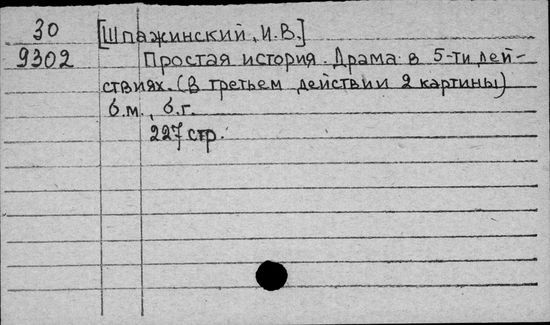 30 [Шпажинский, И.В.]
9302 Простая история. Драма в 5-ти дей-
ствиях. (В третьем действии 2 картины)
б.м., б.г.
227 стр.